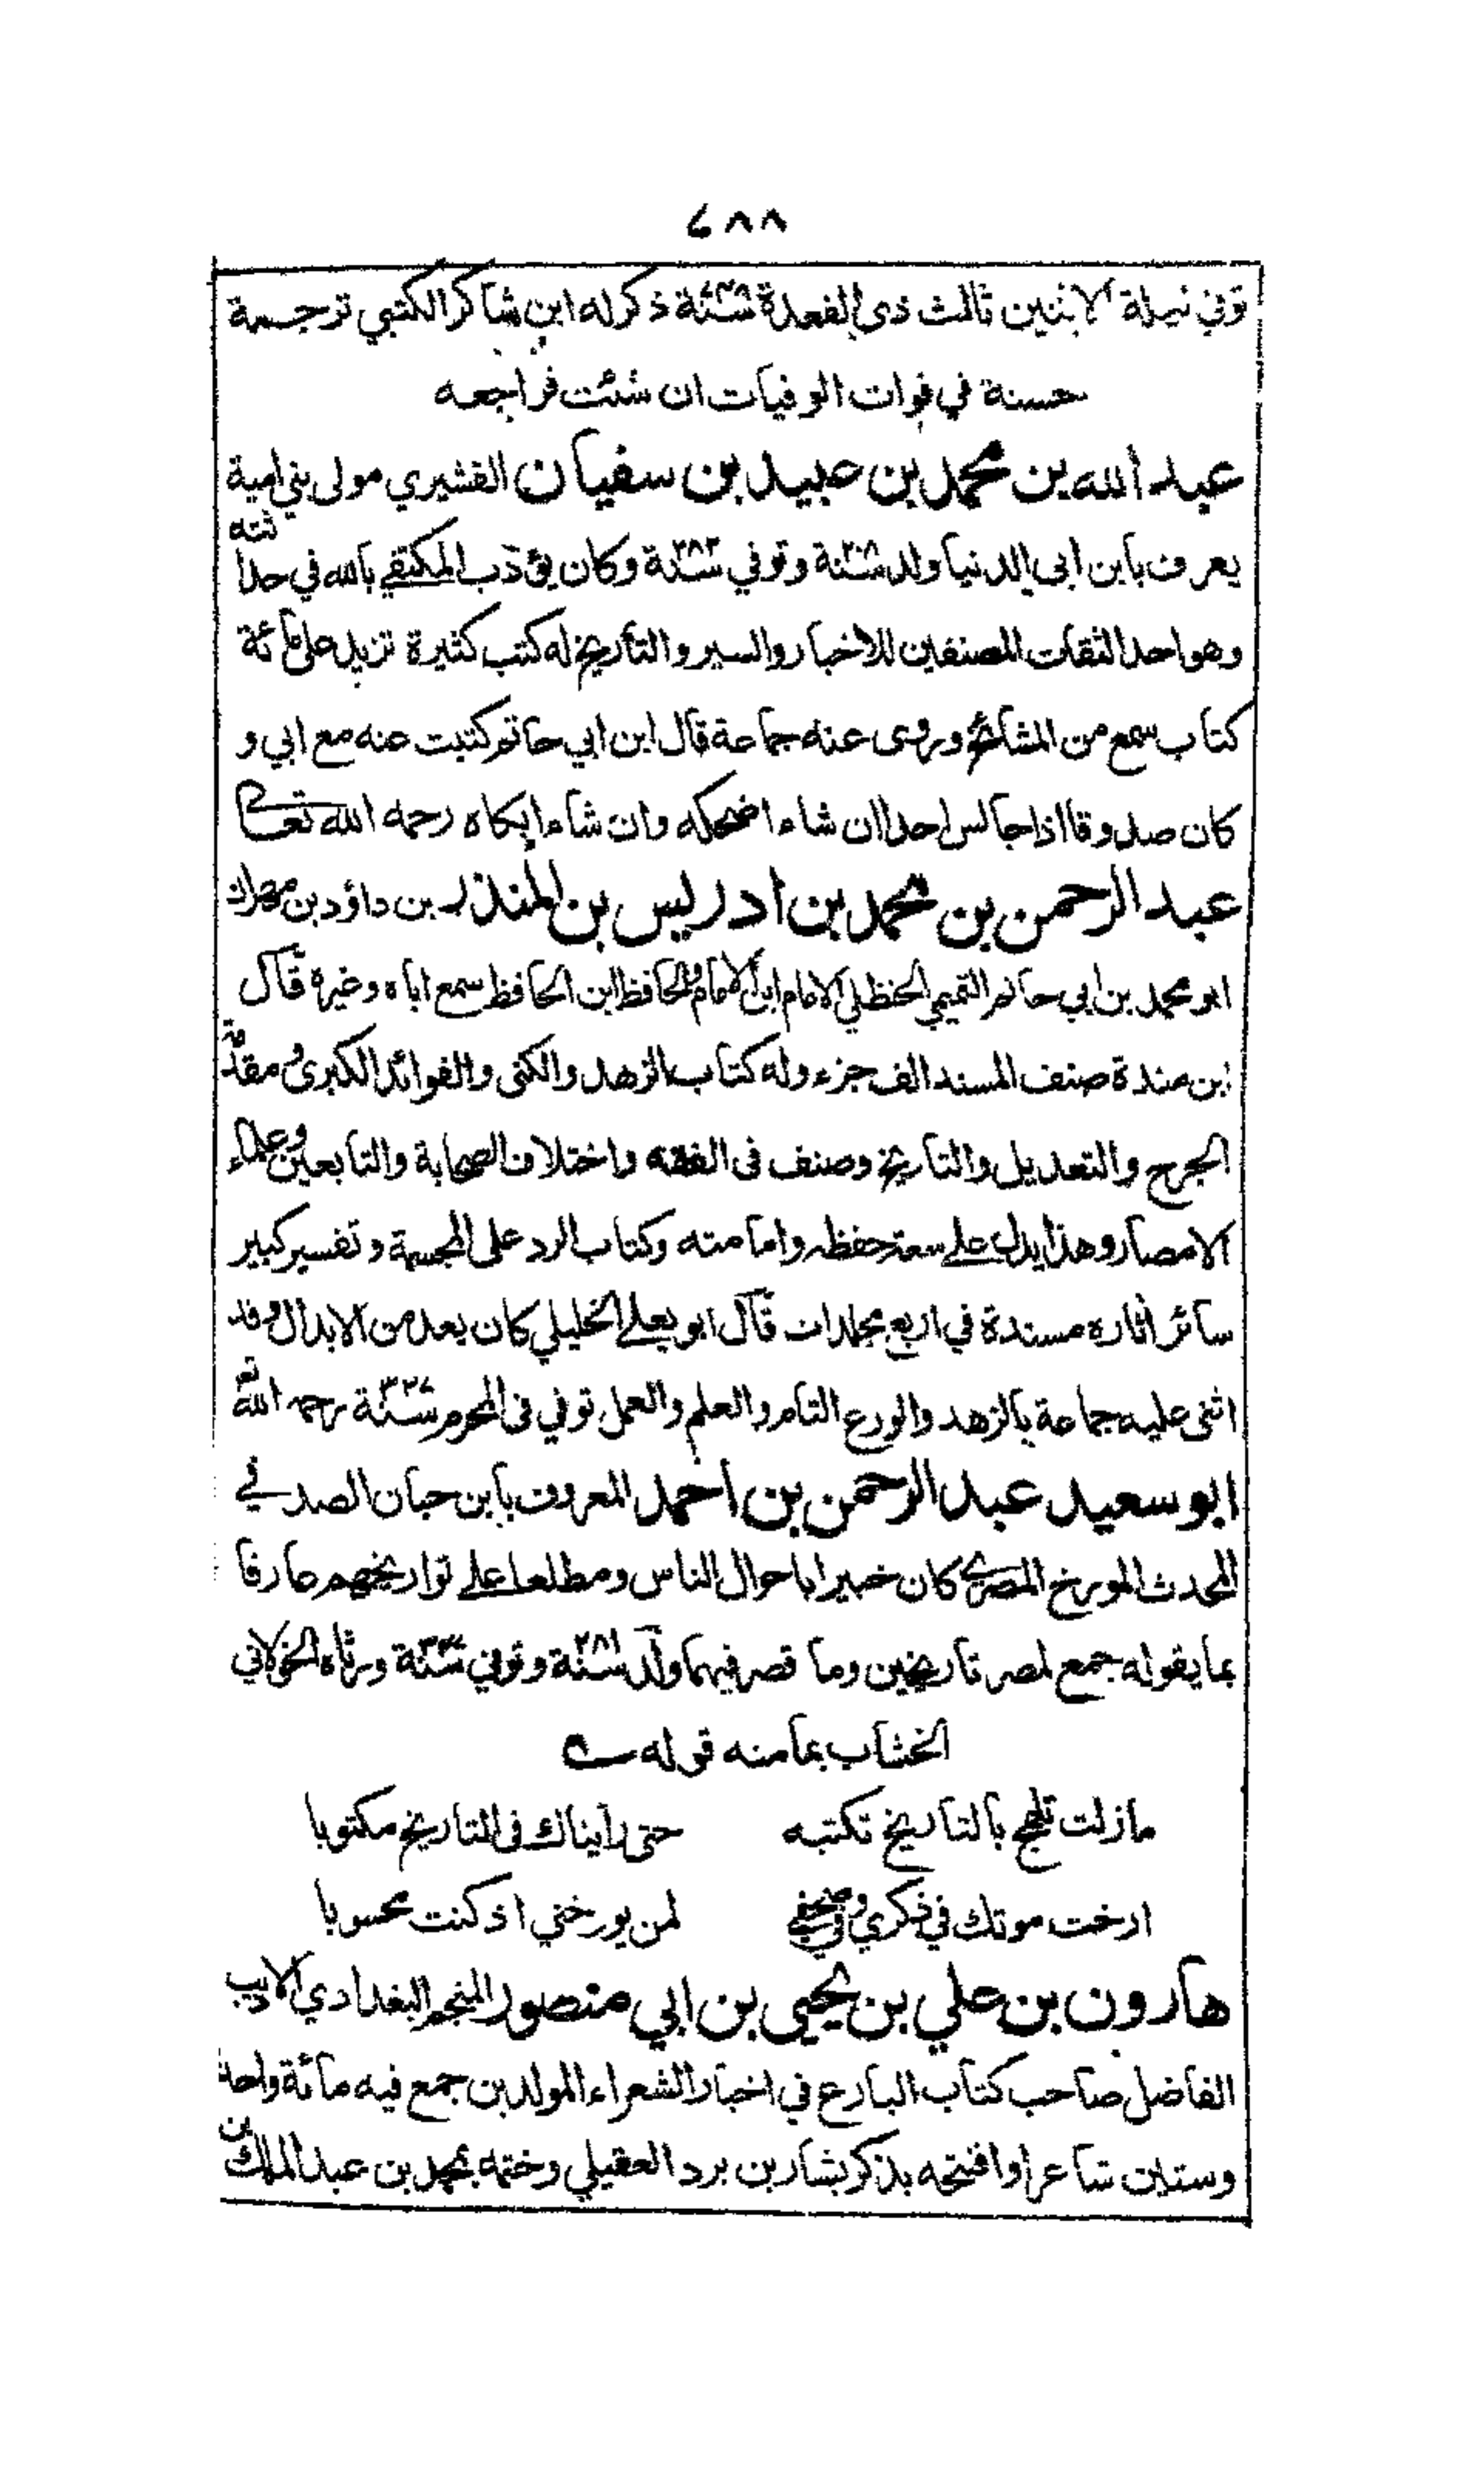 ٤٨٨
توفي ليلة الاثنين ثالث ذي القعدة سنة ذكر له ابن شاكر الكتبي ترجمة
حسنة في فوات الوفيات ان شئت فراجعه
عبد الله بن محمد بن عبيد بن سفيان القشيري مولى بني امية
يعرف بابن ابي الدنيا ولد سنة ٢٠٨ وتوفي سنة ٢٨٢ وكان يؤدب المكتفي بالله في حداثته
وهو احد الثقات المصنفين للاخبار والسير والتأريخ له كتب كثيرة تزيد على مائة
كتاب سمع من المشائخ وروى عنه جماعة قال ابن ابي حاتم كتبت عنه مع ابي و
كان صدوقا اذا جالس احدا ان شاء اضحكه وان شاء ابكاه رحمه الله تعالى
عبد الرحمن بن محمد بن ادريس بن المنذر بن داؤد بن مهران
ابو محمد بن ابي حاتم التميمي الحنظلي الامام ابن الامام والحافظ ابن الحافظ سمع اباه وغيره قال
ابن مندة صنف المسند الف جزء وله كتاب الزهد والكنى والفوائد الكبرى ومقدمة
الجرح والتعديل والتاريخ وصنف في الفقه واختلاف الصحابة والتابعين وعلماء
الامصار وهذا يدل على سعة حفظه وامامته وكتاب الرد على المجسمة وتفسير كبير
سائر اثاره مسندة في اربع مجلدات قال ابو يعلى الخليلي كان يعد من الابدال وقد
اثنى عليه جماعة بالزهد والورع التام والعلم والعمل توفي في المحرم سنة ٣٢٧ رحمه الله تع
ابو سعيد عبد الرحمن بن احمد المعروف بابن حبان الصدفي
المحدث المورخ المصري كان خبيرا باحوال الناس ومطلعا على تواريخهم عارفا
بما يقوله جمع لمصر تاريخين وما قصر فيهما ولد سنة ٢٨١ وتوفي سنة ورثاه الخولاني
الخشاب بما منه قوله
مازلت تلهج بالتاريخ تكتبه حتى رأيناك في التاريخ مكتوبا
ارخت موتك في ذكري وفي صحفي لمن يورخني اذ كنت محسوبا
هارون بن علي بن يحيى بن ابي منصور المنجم البغدادي الاديب
الفاضل صاحب كتاب البارع في اخبار الشعراء المولدين جمع فيه مائة واحدا
وستين شاعرا وافتتحه بذكر بشار بن برد العقيلي وختمه بمحمد بن عبد الملك بن